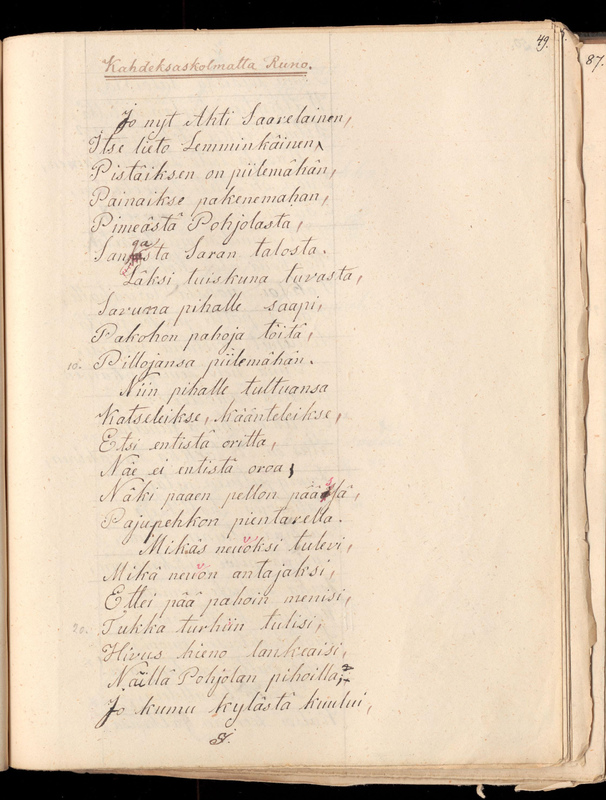 49.
87.
Kahdeksaskolmatta Runo.
Jo nyt Ahti Saarelainen,
Itse lieto Lemminkäinen
Pistäiksen on piilemähän,
Painaikse pakenemahan,
Pimeästä Pohjolasta,
Sangasta Saran talosta.
Läksi tuiskuna tuvasta,
Savuna pihalle saapi,
Pakohon pahoja töitä,
10. Pillojansa piilemähän.
Niin pihalle tultuansa
Katseleikse, käänteleikse,
Etsi entistä oritta,
Näe ei entistä oroa;
Näki paaen pellon päässä,
Pajupehkon pientarella.
Mikäs neuvoksi tulevi,
Mikä neuvon antajaksi,
Ettei pää pahoin menisi,
20. Tukka turhiin tulisi,
Hivus hieno lankeaisi,
Näillä Pohjolan pihoilla;?
Jo kumu kylästä kuului,